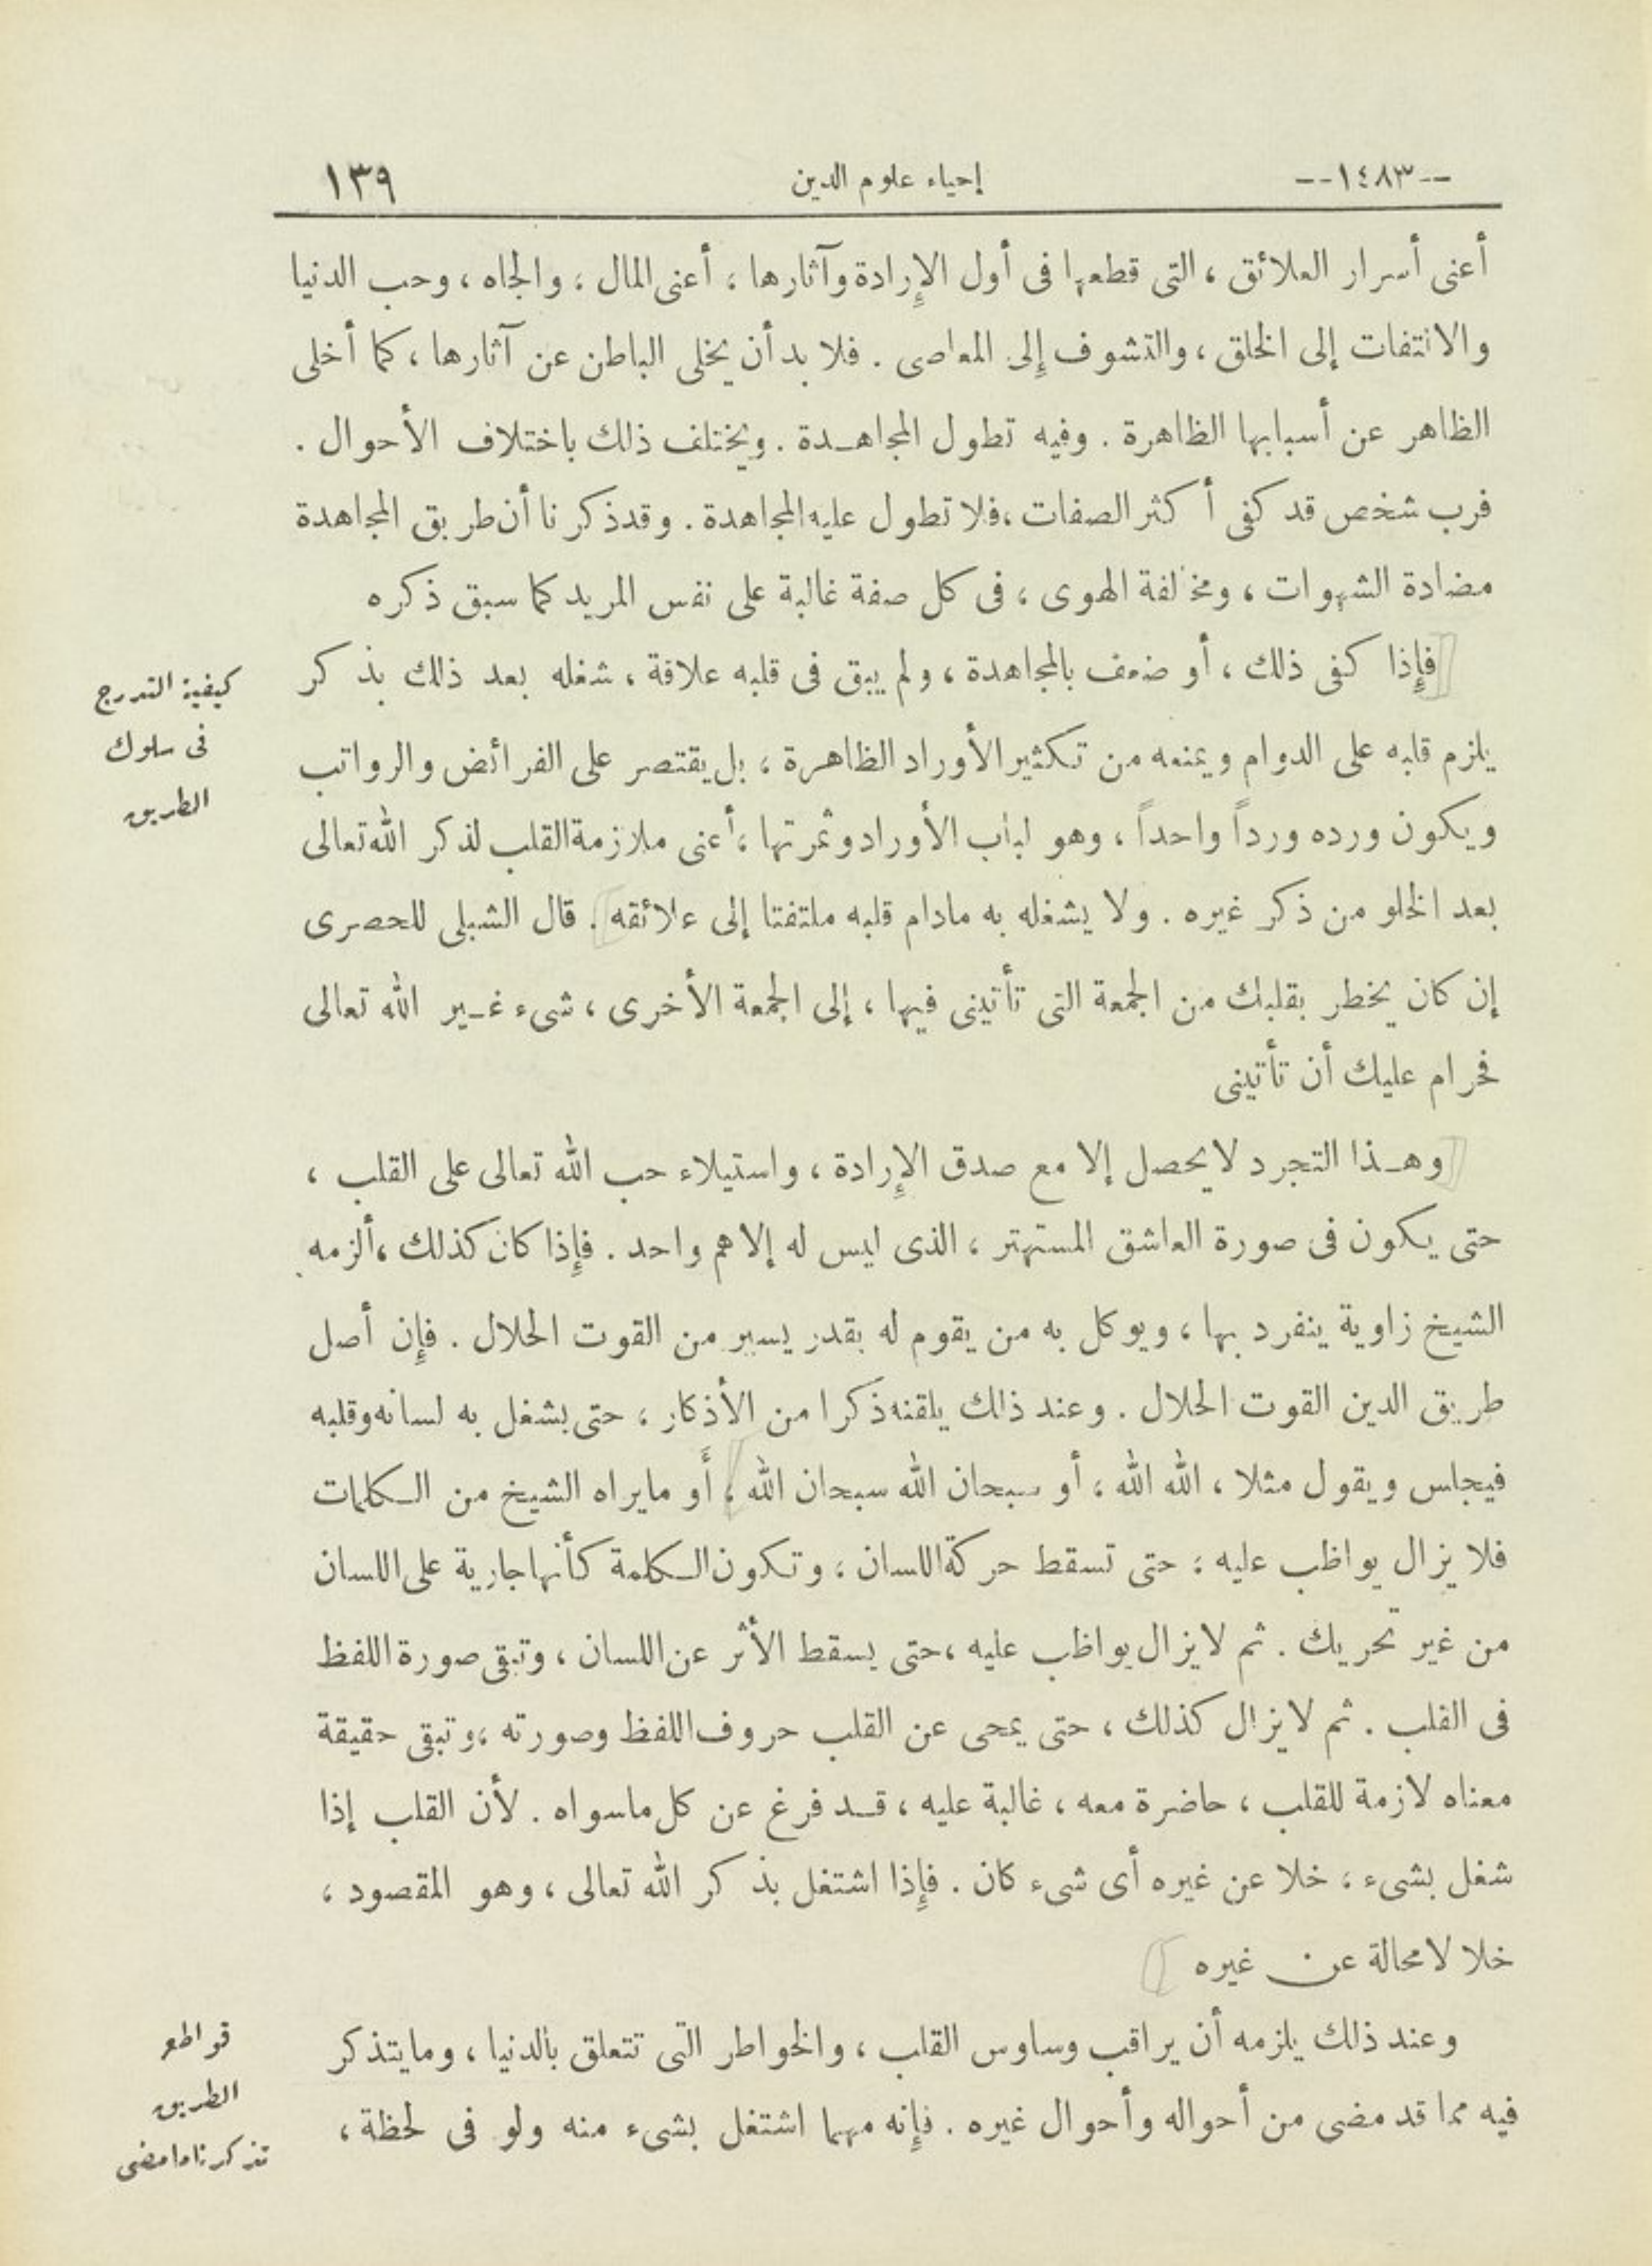 --١٤٨٣-- إحياء علوم الدين ١٣٩
أعنى أسرار العلائق ، التى قطعها فى أول الإرادة وآثارها ، أعنى المال ، والجاه ، وحب الدنيا
والالتفات إلى الخلق ، والتشوف إلى المعاصى . فلا بد أن يخلى الباطن عن آثارها ، كما أخلى
الظاهر عن أسبابها الظاهرة . وفيه تطول المجاهـدة . ويختلف ذلك باختلاف الأحوال .
فرب شخص قد كفى أكثر الصفات ، فلا تطول عليه المجاهدة . وقد ذكرنا أن طريق المجاهدة
مضادة الشهوات ، ومخالفة الهوى ، فى كل صفة غالبة على نفس المريد كما سبق ذكره
فإذا كفى ذلك ، أو ضعف بالمجاهدة ، ولم يبق فى قلبه علاقة ، شغله بعد ذلك بذكر
كيفية التدرج
فى سلوك
الطريق
يلزم قلبه على الدوام ويمنعه من تكثير الأوراد الظاهرة ، بل يقتصر على الفرائض والرواتب
ويكون ورده ورداً واحداً ، وهو لباب الأوراد وثمرتها ، أعنى ملازمة القلب لذكر الله تعالى
بعد الخلو من ذكر غيره . ولا يشغله به مادام قلبه ملتفتا إلى علائقه . قال الشبلى للحصرى
إن كان يخطر بقلبك من الجمعة التى تأتينى فيها ، إلى الجمعة الأخرى ، شىء غـير الله تعالى
فحرام عليك أن تأتينى
وهـذا التجرد لايحصل إلا مع صدق الإرادة ، واستيلاء حب الله تعالى على القلب ،
حتى يكون فى صورة العاشق المستهتر ، الذى ليس له إلا هم واحد . فإذا كان كذلك ، ألزمه
الشيخ زاوية ينفرد بها ، ويوكل به من يقوم له بقدر يسير من القوت الحلال . فإن أصل
طريق الدين القوت الحلال . وعند ذلك يلقنه ذكرا من الأذكار ، حتى يشغل به لسانه وقلبه
فيجلس ويقول مثلا ، الله الله ، أو سبحان الله سبحان الله ، أَو مايراه الشيخ من الكلمات
فلا يزال يواظب عليه ؛ حتى تسقط حركة اللسان ، وتكون الكلمة كأنها جارية على اللسان
من غير تحريك . ثم لايزال يواظب عليه ، حتى يسقط الأثر عن اللسان ، وتبقى صورة اللفظ
فى القلب . ثم لايزال كذلك ، حتى يمحى عن القلب حروف اللفظ وصورته ، وتبقى حقيقة
معناه لازمة للقلب ، حاضرة معه ، غالبة عليه ، قـد فرغ عن كل ماسواه . لأن القلب إذا
شغل بشىء ، خلا عن غيره أى شىء كان . فإذا اشتغل بذكر الله تعالى ، وهو المقصود ،
خلا لامحالة عن غيره
وعند ذلك يلزمه أن يراقب وساوس القلب ، والخواطر التى تتعلق بالدنيا ، ومايتذكر
قواطع
الطريق
تذكر نا ما مضى
فيه مما قد مضى من أحواله وأحوال غيره . فإنه مهما اشتغل بشىء منه ولو فى لحظة ،